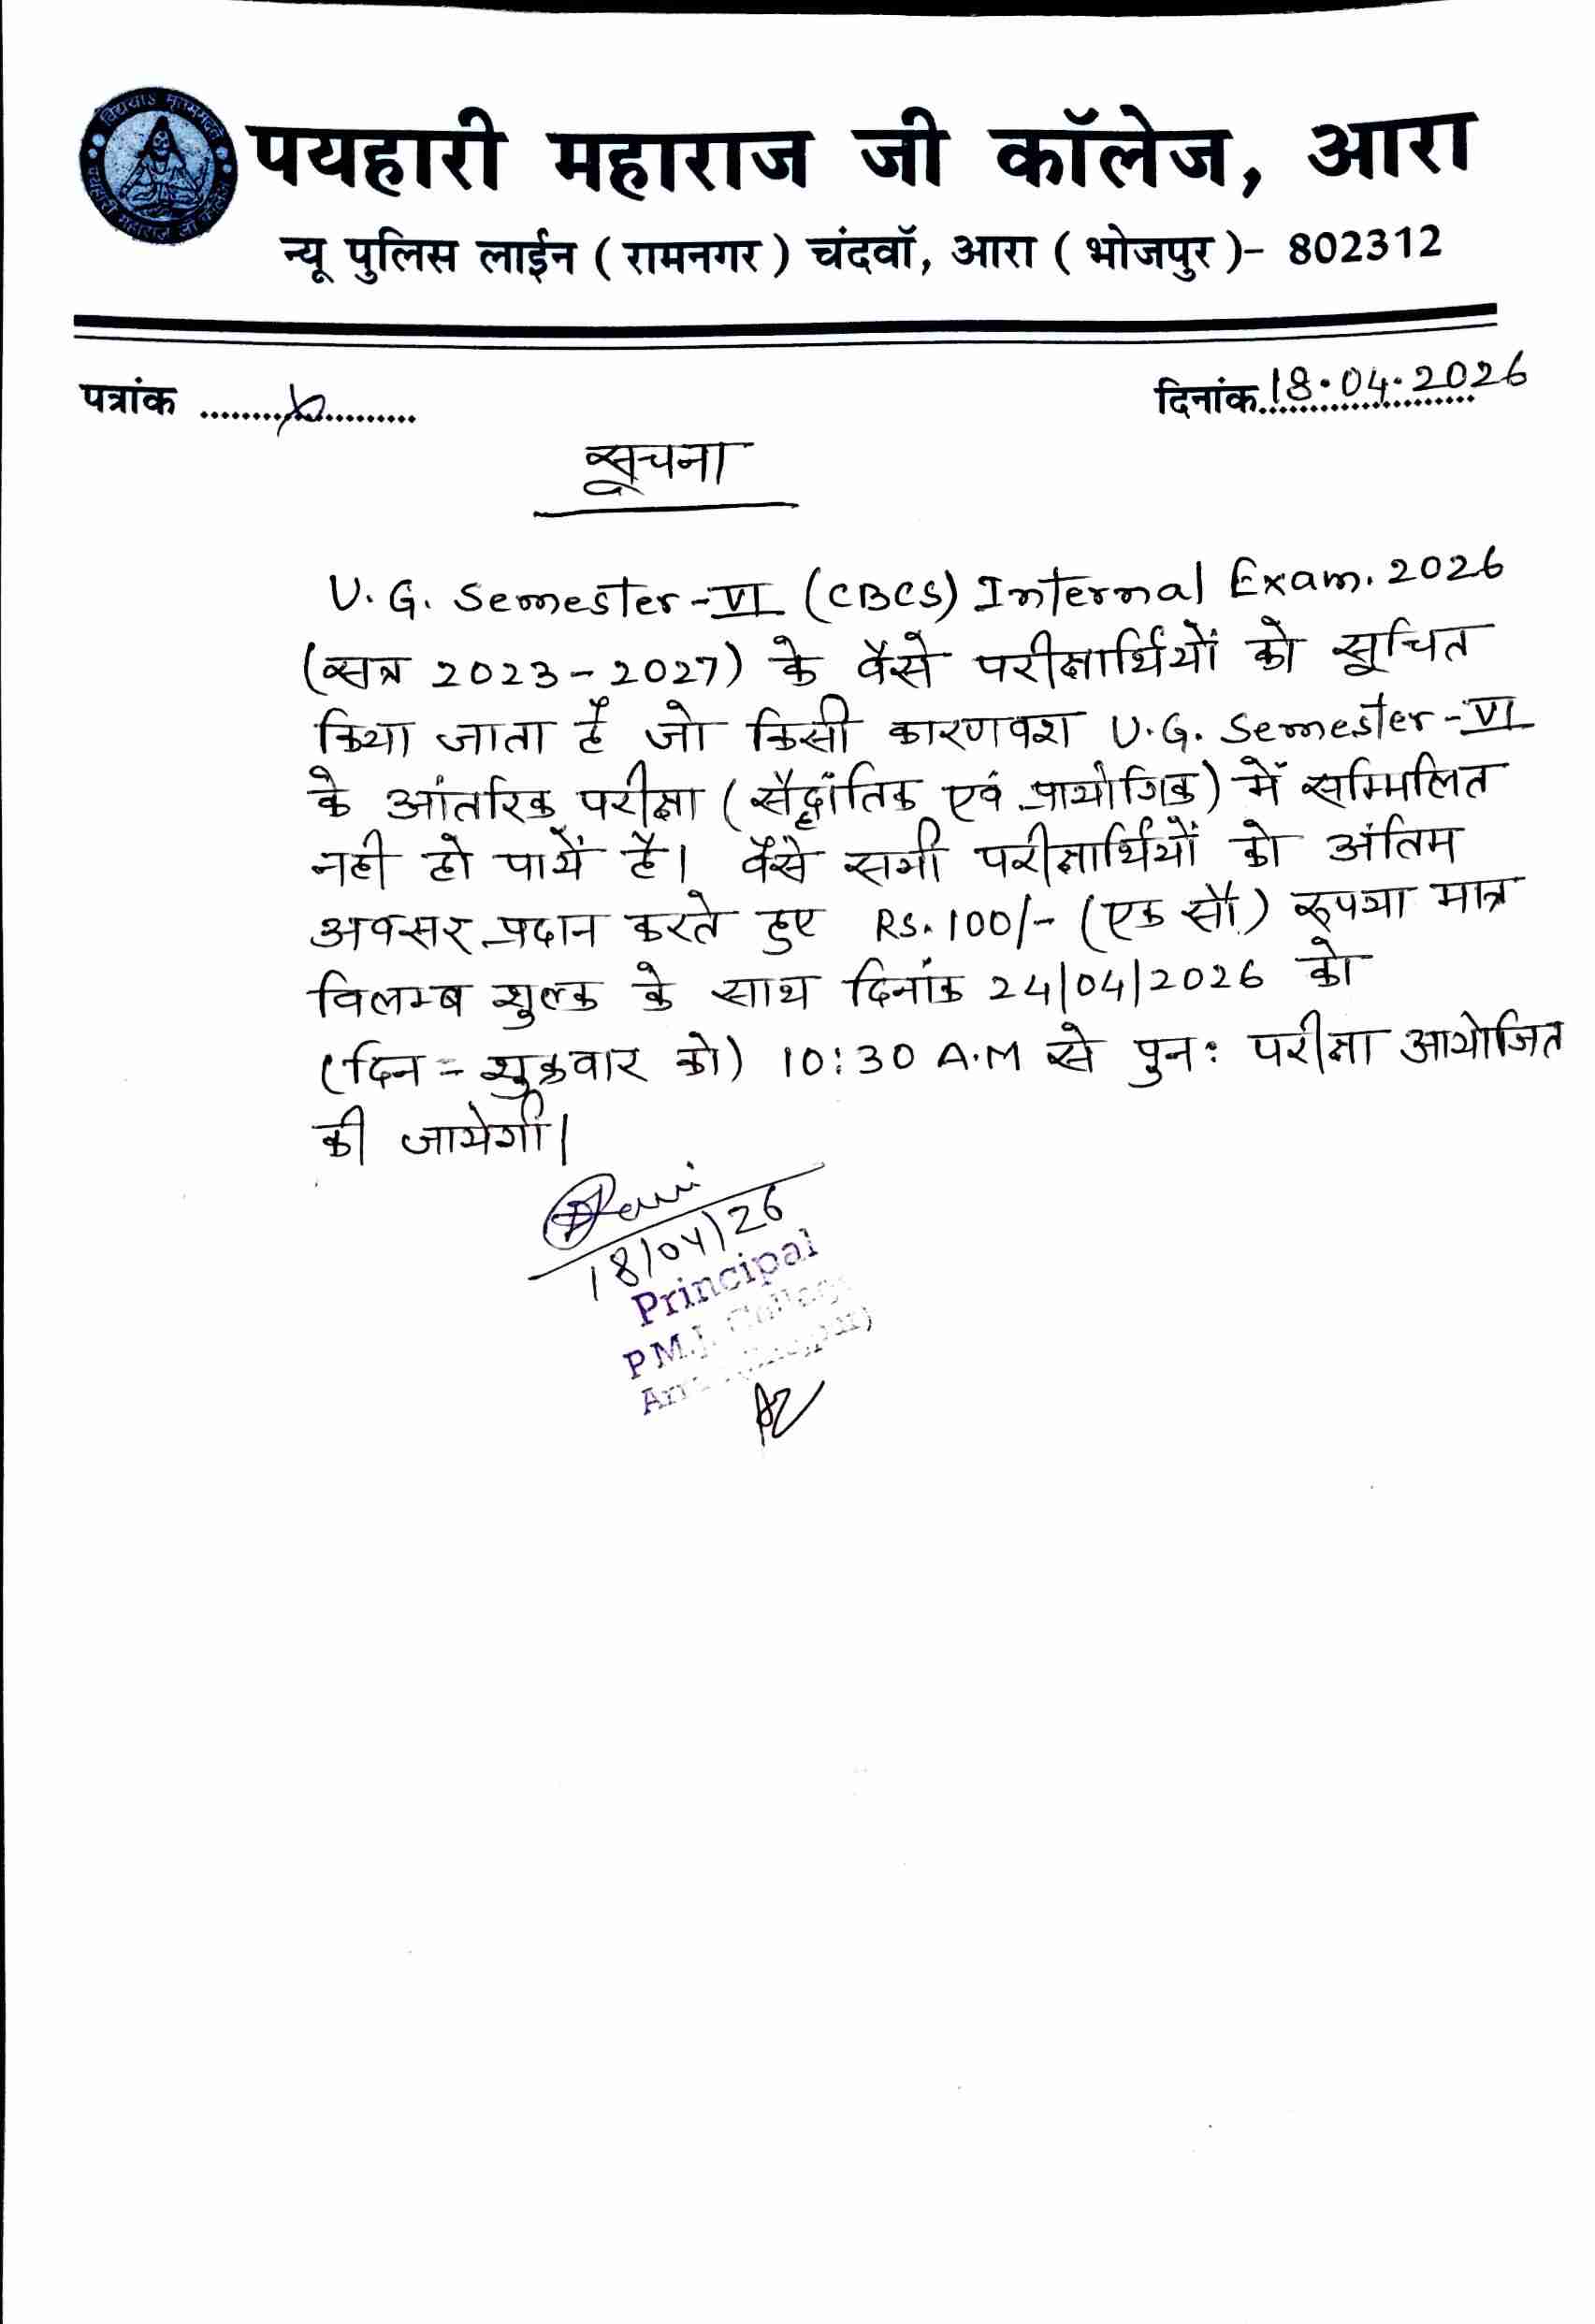 विद्ययाऽ मृतमश्नुते
पयहारी महाराज जी कॉलेज
पयहारी महाराज जी कॉलेज, आरा
न्यू पुलिस लाईन ( रामनगर ) चंदवॉ, आरा ( भोजपुर )- 802312
पत्रांक ....................
दिनांक 18.04.2026
सूचना
U.G. Semester-VI (CBCS) Internal Exam. 2026
(सत्र 2023-2027) के वैसे परीक्षार्थियों को सूचित
किया जाता है जो किसी कारणवश U.G. Semester-VI
के आंतरिक परीक्षा (सैद्धांतिक एवं प्रायोगिक) में सम्मिलित
नही हो पायें है। वैसे सभी परीक्षार्थियों को अंतिम
अवसर प्रदान करते हुए RS. 100/- (एक सौ) रूपया मात्र
विलम्ब शुल्क के साथ दिनांक 24/04/2026 को
(दिन = शुक्रवार को) 10:30 A.M से पुनः परीक्षा आयोजित
की जायेगी।
18/04/26
Principal
P.M.J. College